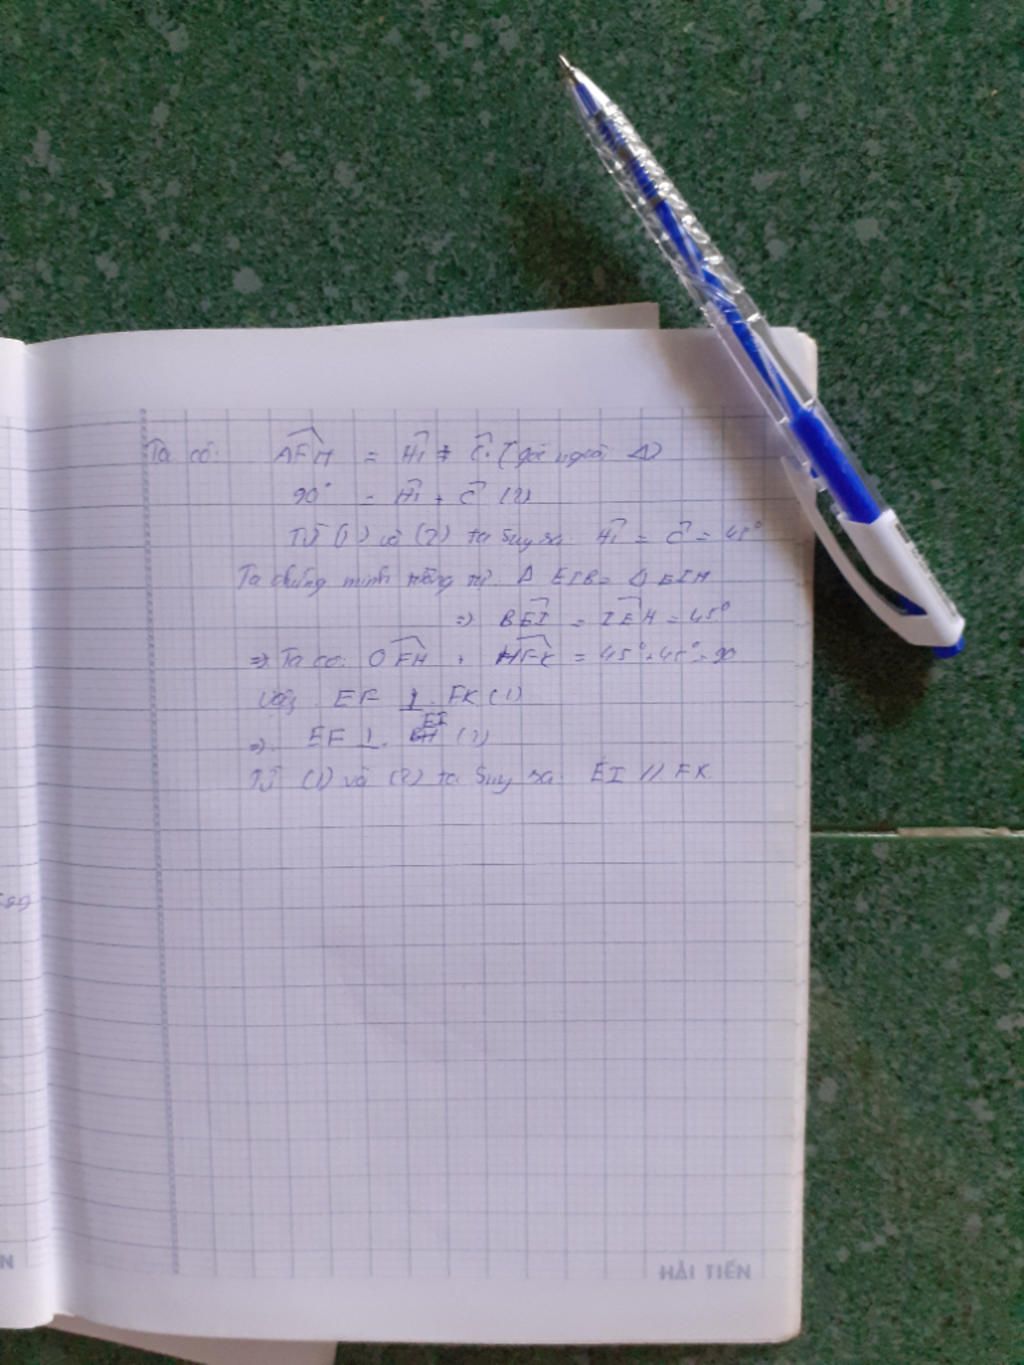 Ta có: AFH = H1 + C (góc ngoài Δ)
90° = H1 + C (2)
Từ (1) và (2) ta suy ra H1 = C = 45°
Ta chứng minh Δ EIB = Δ EIH
=> BEI = IEH = 45°
=> Ta có: OFH + HFK = 45° + 45° = 90
Vậy EF ⊥ FK (1)
=> EF ⊥ EI (2)
Từ (1) và (2) ta suy ra EI // FK
HẢI TIẾN
N